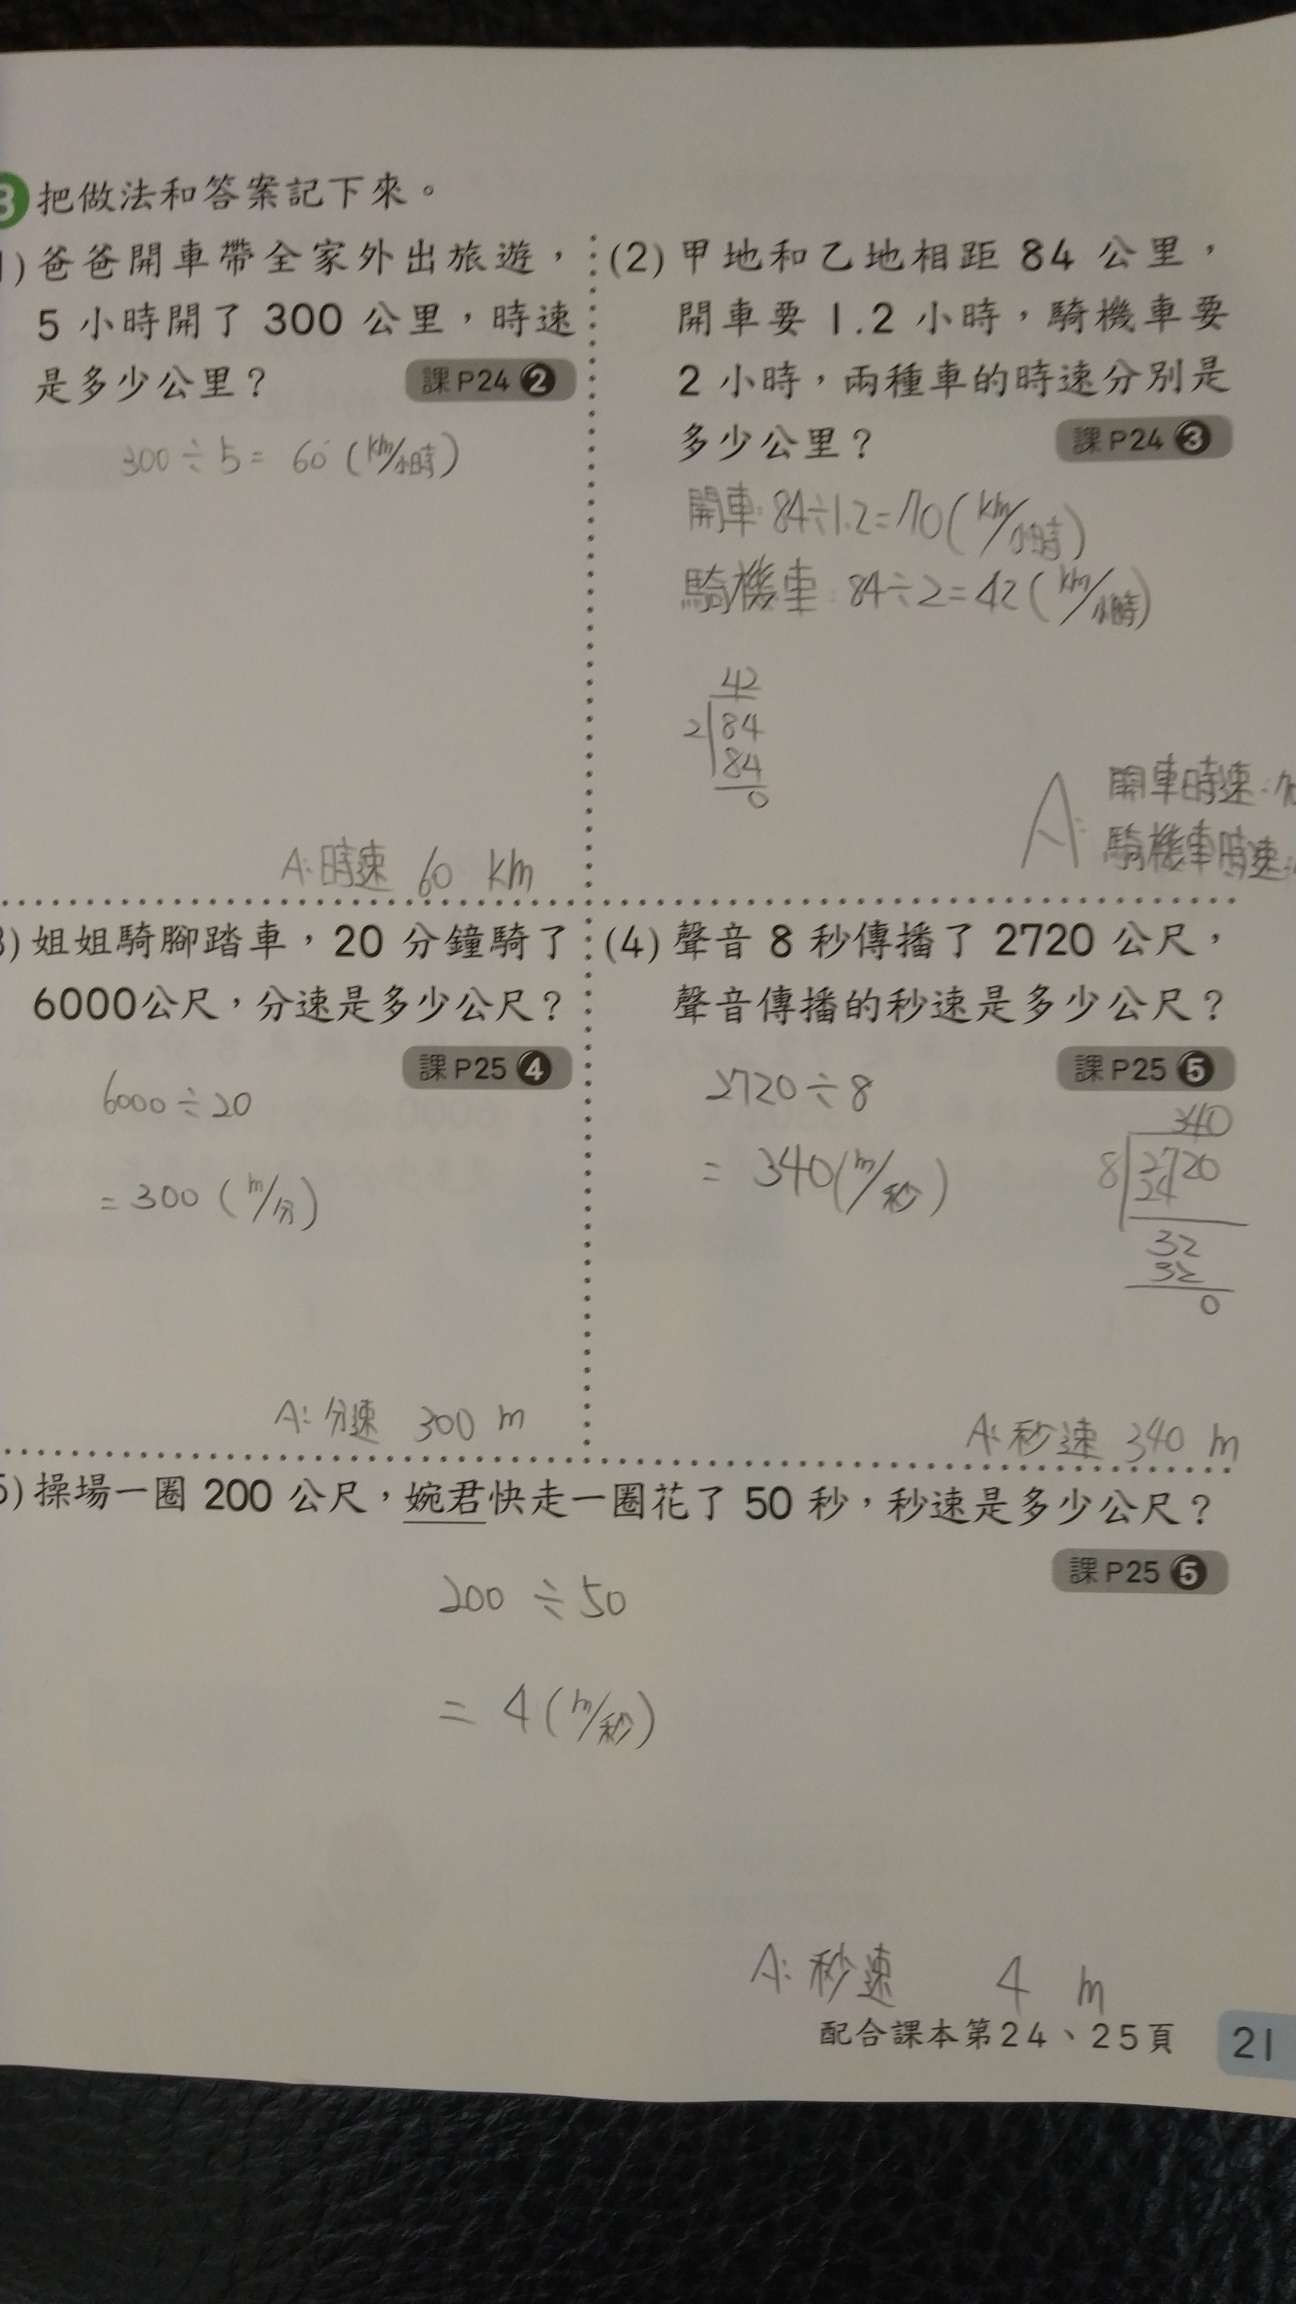 3 把做法和答案記下來。
1) 爸爸開車帶全家外出旅遊，
5 小時開了 300 公里，時速
是多少公里？ 課P24 2
300÷5= 60 (km/小時)
A: 時速 60 km
(2) 甲地和乙地相距 84 公里，
開車要 1.2 小時，騎機車要
2 小時，兩種車的時速分別是
多少公里？ 課P24 3
開車: 84÷1.2=70(km/小時)
騎機車: 84÷2=42(km/小時)
42
2 84
84
0
A: 開車時速:
騎機車時速:
3) 姐姐騎腳踏車，20 分鐘騎了
6000公尺，分速是多少公尺？
課P25 4
6000÷20
= 300 (m/分)
A: 分速 300 m
(4) 聲音 8 秒傳播了 2720 公尺，
聲音傳播的秒速是多少公尺？
課P25 5
2720÷8
= 340(m/秒)
340
8 2720
24
32
32
0
A: 秒速 340 m
5) 操場一圈 200 公尺，婉君快走一圈花了 50 秒，秒速是多少公尺？
課P25 5
200 ÷50
= 4(m/秒)
A: 秒速 4 m
配合課本第24、25頁 21